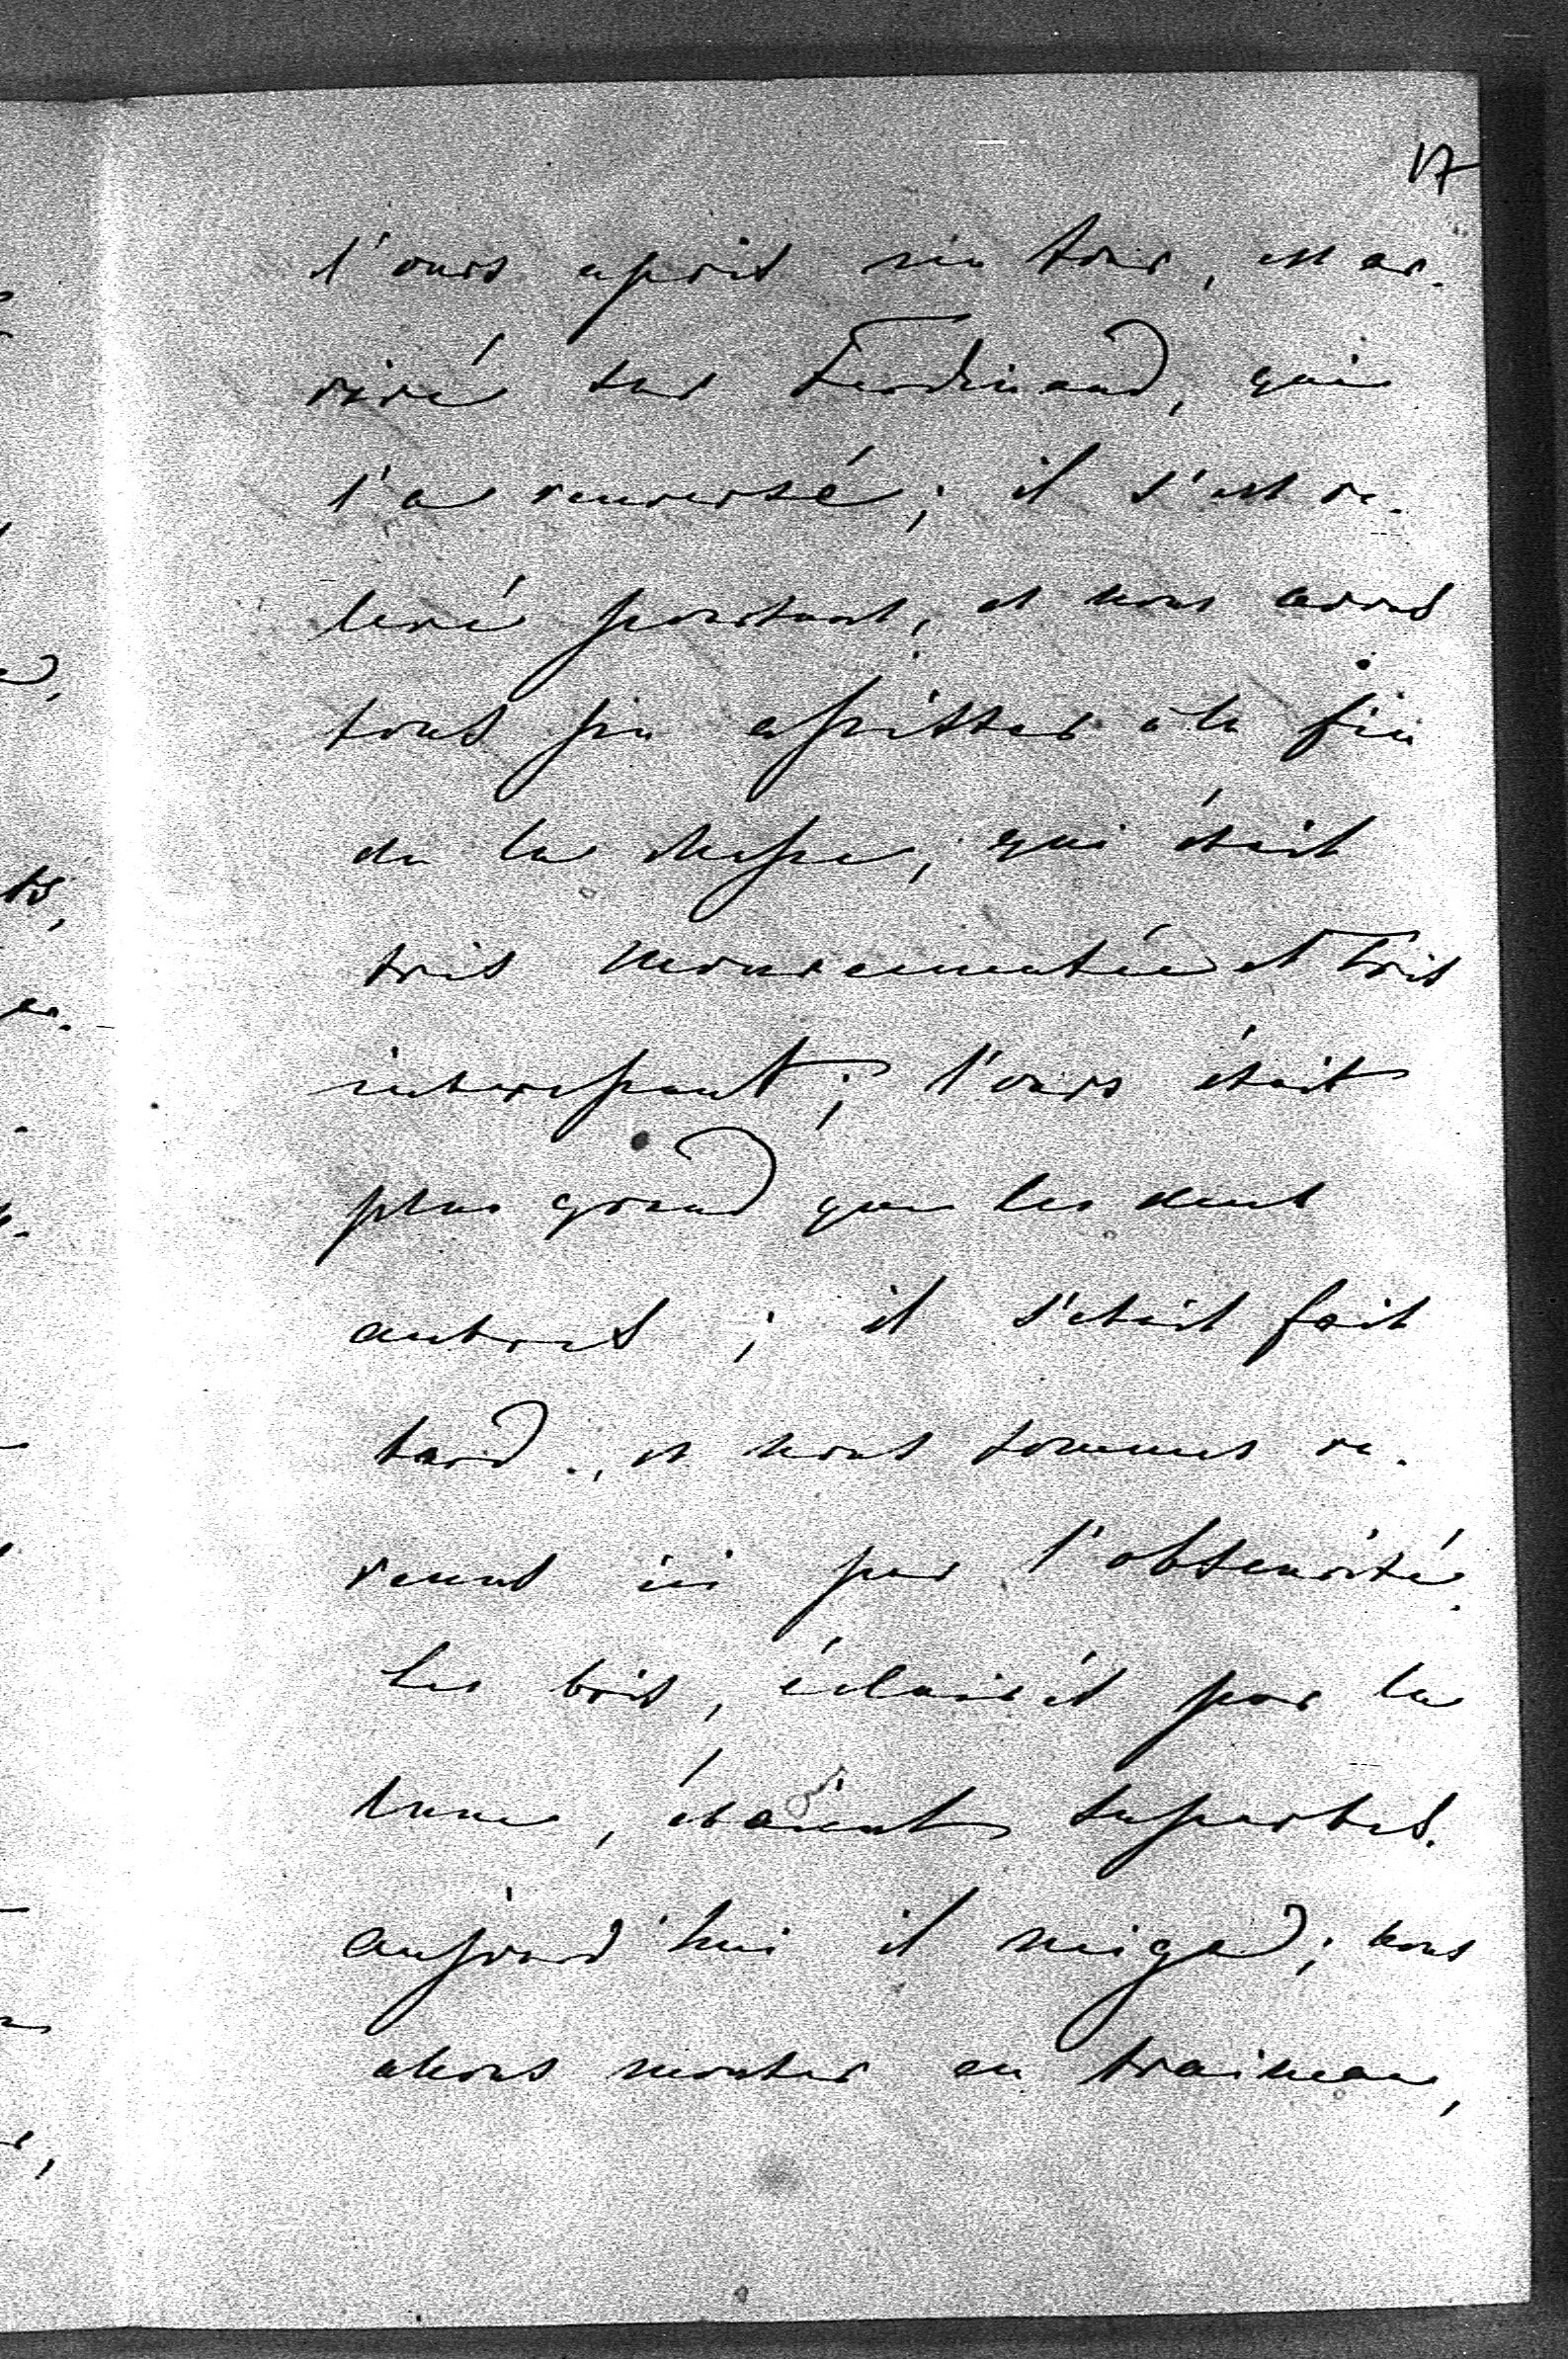 17
l'ours a pris un tour, est ar-
rivé sur Ferdinand, qui
l'a renversé; il s'est re-
levé pourtant, et nous avons
tous pu assister à la fin
de la chasse, qui était
très mouvementée et très
interessant; l'ours était
plus grand que les deux
autres; il s'était fait
tard, et nous sommes re-
venus ici par l'obscurité.
Les bois, éclairés par la
lune, étaient superbes.
aujourd'hui il neige; nous
allons monter en traineau,